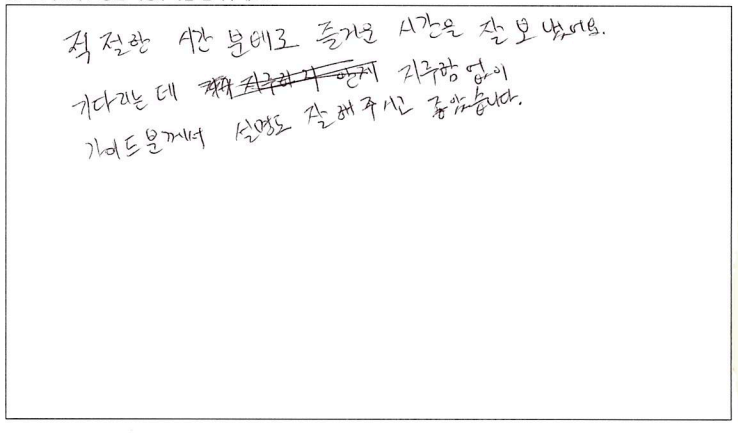 적절한 시간 분배로 즐거운 시간을 잘 보냈어요.
기다리는 데 지루함 없이
가이드분께서 설명도 잘 해주시고 좋았습니다.